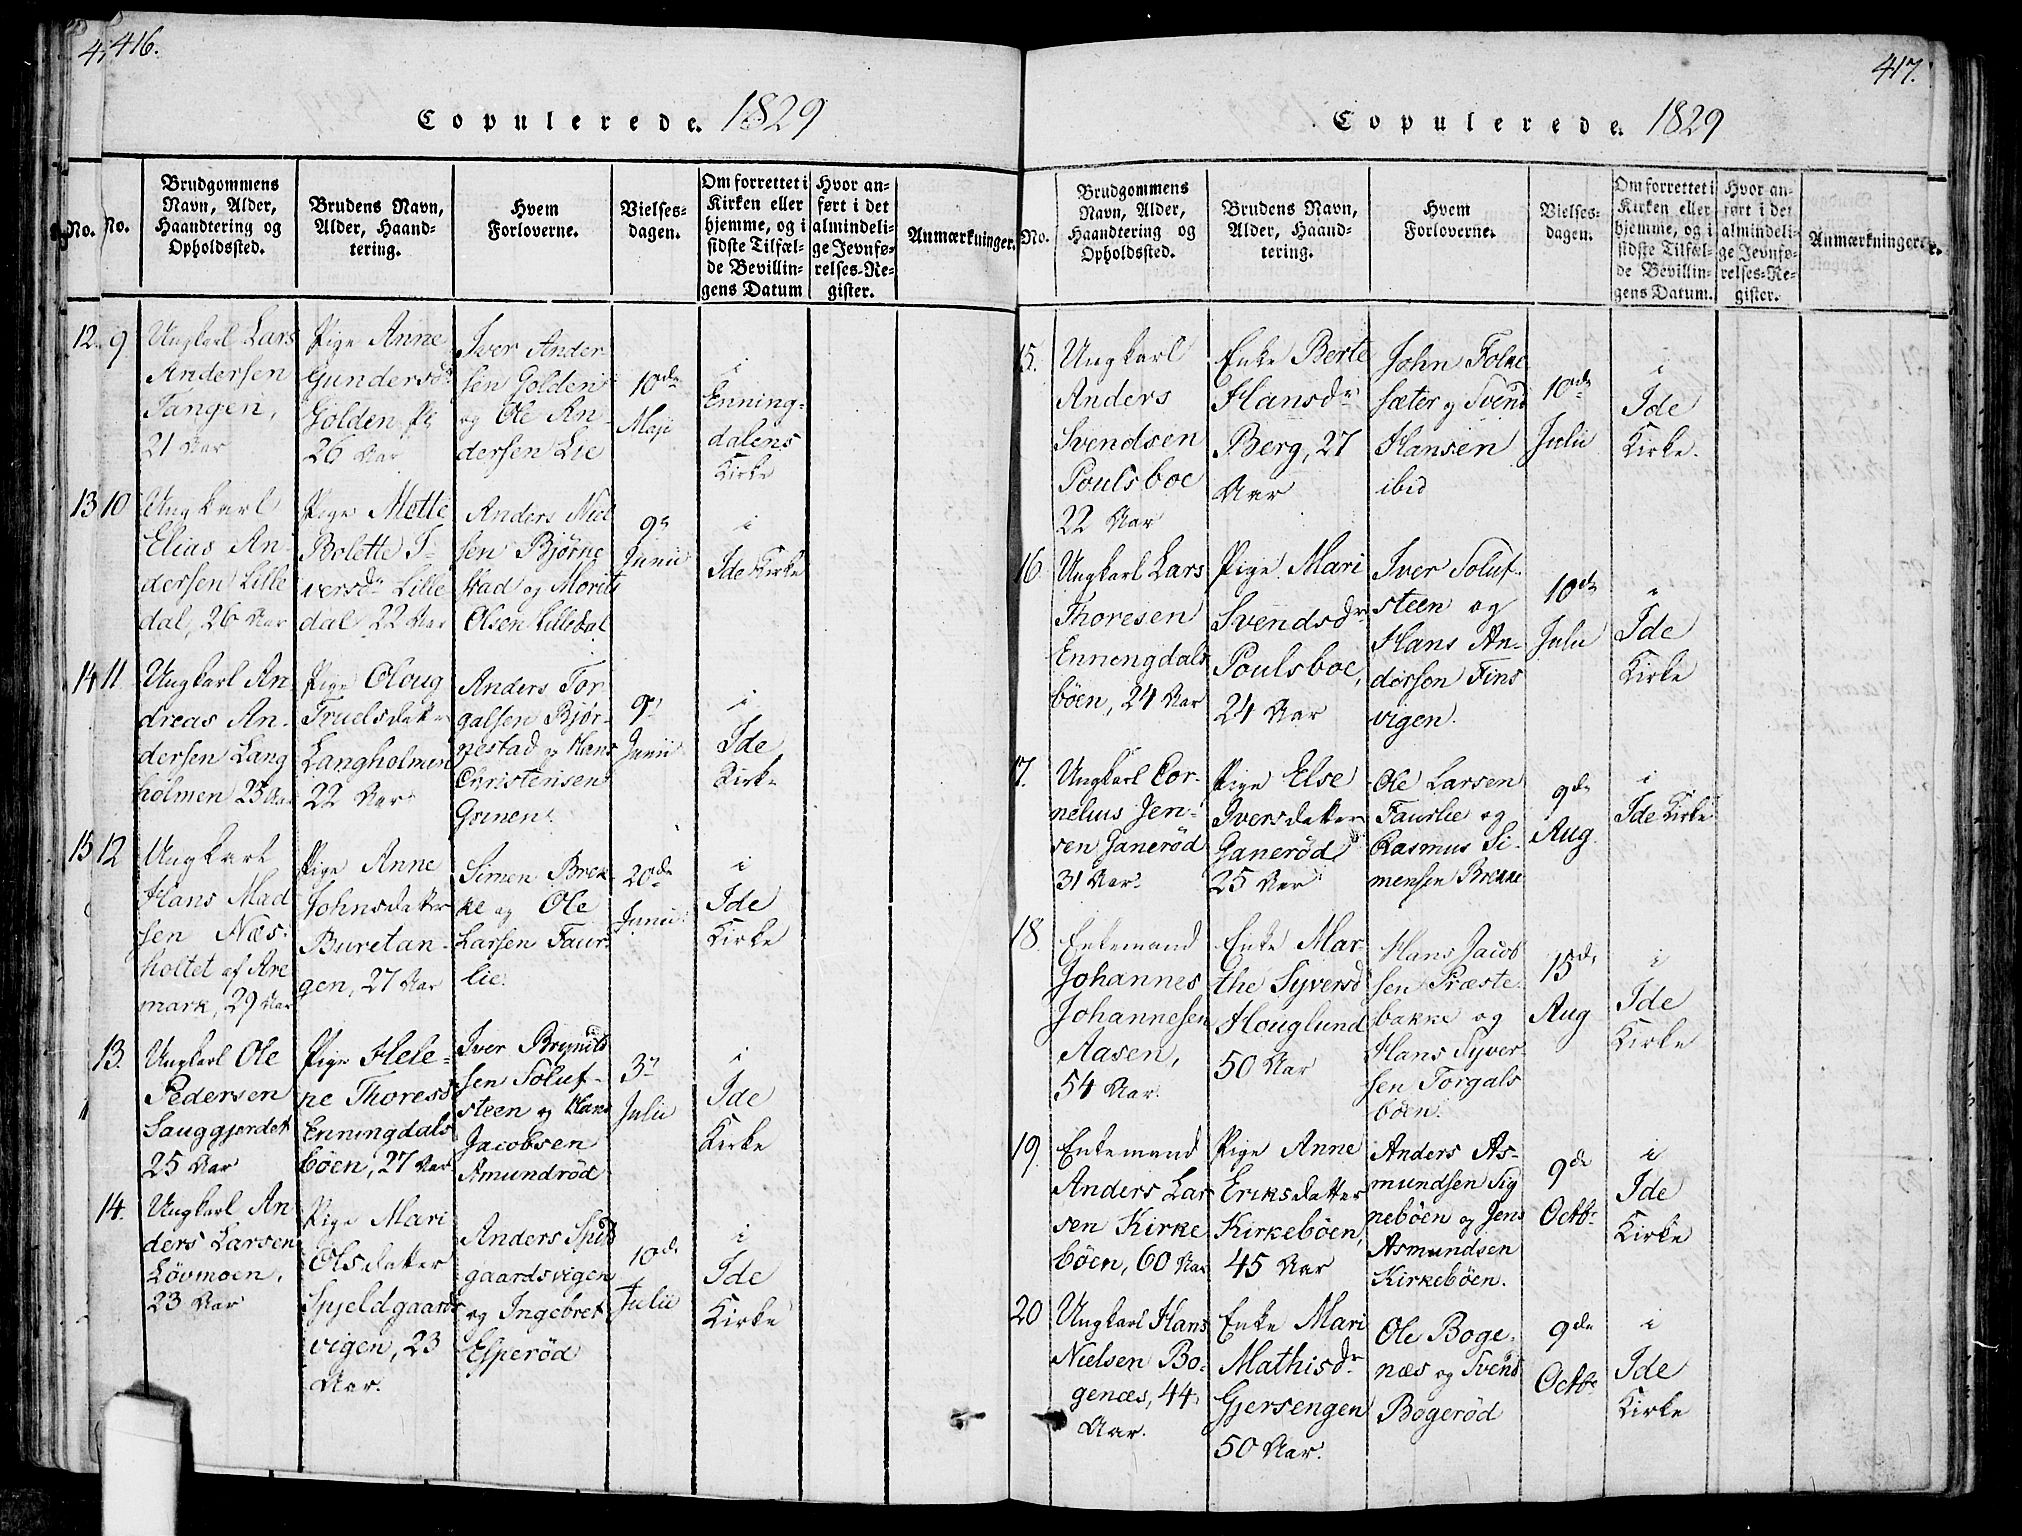 416.
Copulerede. 1829
No.
No.
Brudgommens
Navn, Alder,
Haandtering og
Opholdssted.
Brudens Navn,
Alder, Haand-
tering.
Hvem
Forloverne.
Vielses-
dagen.
Om forrettet i
Kirken eller
hjemme, og i
sidste Tilfæl-
de Bevillin-
gens Datum
Hvor an-
ført i det
almindeli-
ge Jevnfø-
relses-Re-
gister.
Anmærkninger.
12
9
Ungkarl Lars
Andersen
Tangen,
21 Aar
Pige Anne
Gundersd
Golden
26 Aar
Iver Ander
sen Golden
og Ole An-
dersen Lie
10de
Maji
i
Enning-
dalens
Kirke
13
10
Ungkarl
Elias An-
dersen Lille
dal, 26 Aar
Pige Mette
Bolette I-
versdr Lille
dal 22 Aar
Anders Niel
sen Bjørne
stad og Morits
Olsen Lilledal
9de
Junii
i
Ide Kirke
14
11
Ungkarl An
dreas An-
dersen Lang
holmen 23 Aar
Pige Oloug
Truelsdatter
Langholmen
22 Aar
Anders Tor
galsen Bjør-
nestad og Hans
Christensen
Grinen
9de
Junii
i
Ide
Kirke
15
12
Ungkarl
Hans Mad
sen Næs-
holtet af Are
mark, 29 Aar
Pige Anne
Johnsdatter
Buretan-
gen, 27 Aar
Simen Brek
ke og Ole
Larsen Faur-
lie.
20de
Junii
i
Ide
Kirke
13.
Ungkarl Ole
Pedersen
Sauggjerdet
25 Aar
Pige Hele-
ne Thoresd
Enningdals
böen, 27 Aar
Iver Brynild
sen Soluf-
steen og Hans
Jacobsen
Amundrød
3de
Julii
i
Ide
Kirke
14.
Ungkarl An
ders Larsen
Lövmoen,
23 Aar
Pige Mari
Olsdatter
Spjeldgaards
vigen, 23
Aar.
Anders Spield
gaardsvigen
og Ingebret
Esperød
10de
Julii
i
Ide
Kirke
417.
Copulerede. 1829
No.
Brudgommens
Navn, Alder,
Haandtering og
Opholdssted.
Brudens Navn,
Alder, Haand-
tering.
Hvem
Forloverne.
Vielses-
dagen.
Om forrettet i
Kirken eller
hjemme, og i
sidste Tilfæl-
de Bevillin-
gens Datum.
Hvor an-
ført i det
almindeli-
ge Jevnfø-
relses-Re-
gister.
Anmærkninger.
15.
Ungkarl
Anders
Svendsen
Poulsboe
22 Aar
Enke Berte
Hansdr
Berg, 27
Aar
John Folke
sæter og Svend
Hansen
ibid
10de
Julii
i
Ide
Kirke.
16
Ungkarl Lars
Thoresen
Enningdals
böen, 24 Aar
Pige Mari
Svendsdr
Poulsboe,
24 Aar
Iver Soluf-
steen og
Hans An-
dersen Fins
vigen.
10de
Julii
i
Ide
Kirke
17.
Ungkarl Cor-
nelius Jen-
sen Ganerød
31 Aar
Pige Else
Iversdatter
Ganerød
25 Aar
Ole Larsen
Faurlie og
Rasmus Si-
mensen Brekke
9de
Aug.
i
Ide Kirke
18.
Enkemand
Johannes
Johannesen
Aasen,
54 Aar.
Enke Mar-
the Syversd
Houglund
50 Aar
Hans Jacob
sen Præste-
bakke og
Hans Syver-
sen Torgals
böen.
15de
Aug
i
Ide
Kirke
19.
Enkemand
Anders Lar
sen Kirke
böen, 60 Aar
Pige Anne
Eriksdatter
Kirkeböen,
45 Aar
Anders As-
mundsen Sig
nebøen og Jens
Asmundsen
Kirkebøen.
9de
Octbr
i
Ide
Kirke
20
Ungkarl Hans
Nielsen Bo-
genæs, 44
Aar.
Enke Mari
Mathisdr
Gjersengen
50 Aar.
Ole Boge-
næs og Svend
Bogerød
9de
Octbr
i
Ide
Kirke